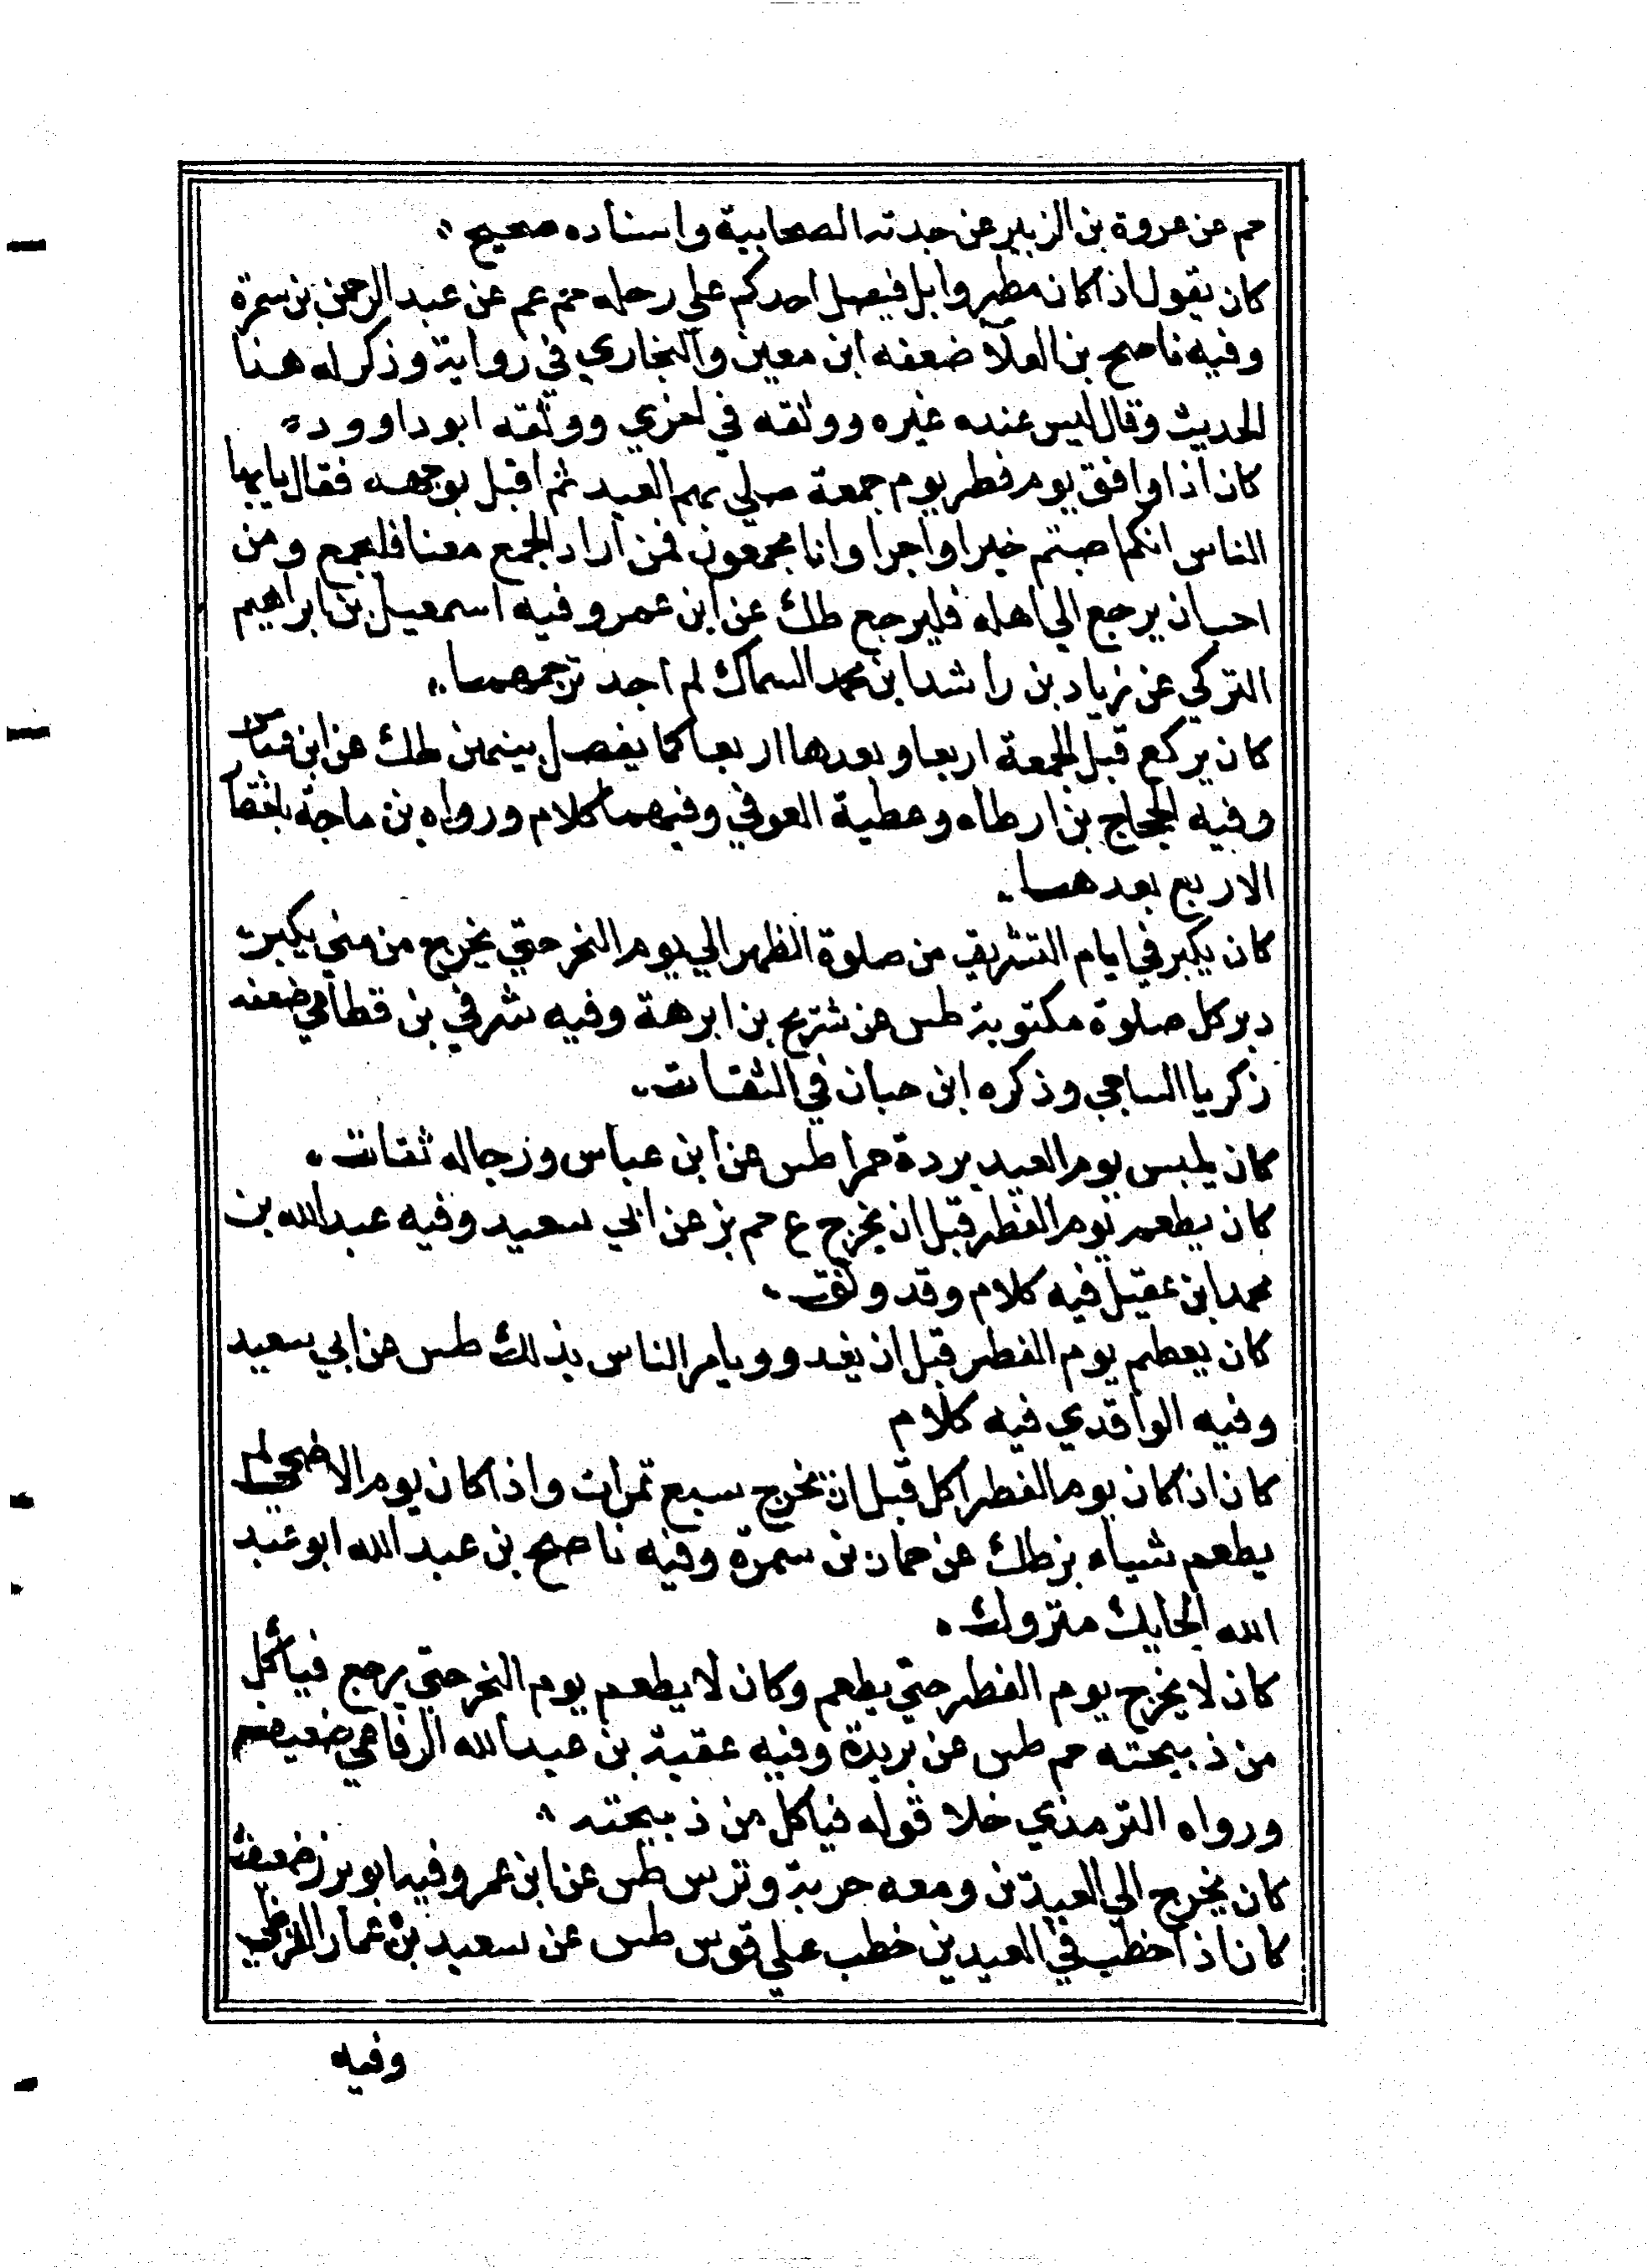 حم عن عروة بن الزبير عن جدته الصحابية واسناده صحيح
كان يقول اذا كان مطر وابل فيصل احدكم علي رحله حم عم عن عبد الرحمن بن سمرة
وفيه ناصح بن العلآ ضعفه ابن معين والبخاري في رواية وذكر له هذا
الحديث وقال ليس عنده غيره ووثقه في اخري ووثقه ابو داوود
كان اذا وافق يوم فطر يوم جمعة صلي بهم العيد ثم اقبل بوجهه فقال يايها
الناس انكم اصبتم خيرا واجرا وانا مجمعون فمن اراد الجمع معنا فليجمع ومن
احب ان يرجع الي اهله فليرجع طك عن ابن عمر وفيه اسمعيل بن ابراهيم
التركي عن زياد بن راشد ابن محمد السماك لم اجد ترجمهما
كان يركع قبل الجمعة اربعا وبعدها اربعا كما يفصل بينهن طك عن ابن عباس
وفيه الحجاج بن ارطاه وعطية العوفي وفيهما كلام ورواه بن ماجة
الاربع بعدها
كان يكبر في ايام التشريق من صلوة الظهر الي يوم النحر حتي يخرج من مني يكبر
دبر كل صلوة مكتوبة طس عن شريح بن ابرهة وفيه شرفي بن قطامي ضعفه
زكريا الساجي وذكره ابن حبان في الثقات
كان يلبس يوم العيد بردة حمرا طس عن ابن عباس ورجاله ثقات
كان يطعم يوم الفطر قبل ان يخرج ع حم بز عن ابي سعيد وفيه عبد الله بن
محمد ابن عقيل فيه كلام وقد وثق
كان يعطم يوم الفطر قبل ان يغدو ويامر الناس بذلك طس عن ابي سعيد
وفيه الواقدي فيه كلام
كان اذا كان يوم الفطر اكل قبل ان يخرج سبع تمرات واذا كان يوم الاضحي لم
يطعم شياء بز طك عن بن سمرة وفيه ناصح بن عبد الله ابو عبد
الله الحايك متروك
كان لا يخرج يوم الفطر حتي يطعم وكان لا يطعم يوم النحر حتي يرجع فياكل
من ذبيحته حم طس عن بريدة وفيه عقبة بن عبد الله الرفاعي ضعيف
ورواه الترمذي خلا قوله فياكل من ذبيحته
كان يخرج الي العيدين ومعه حربة وترس طس عن ابن عمر وفيه ابو برز ضعيف
كان اذا خطب في العيدين خطب علي قوس طس عن سعيد بن عمار القرظي
وفيه